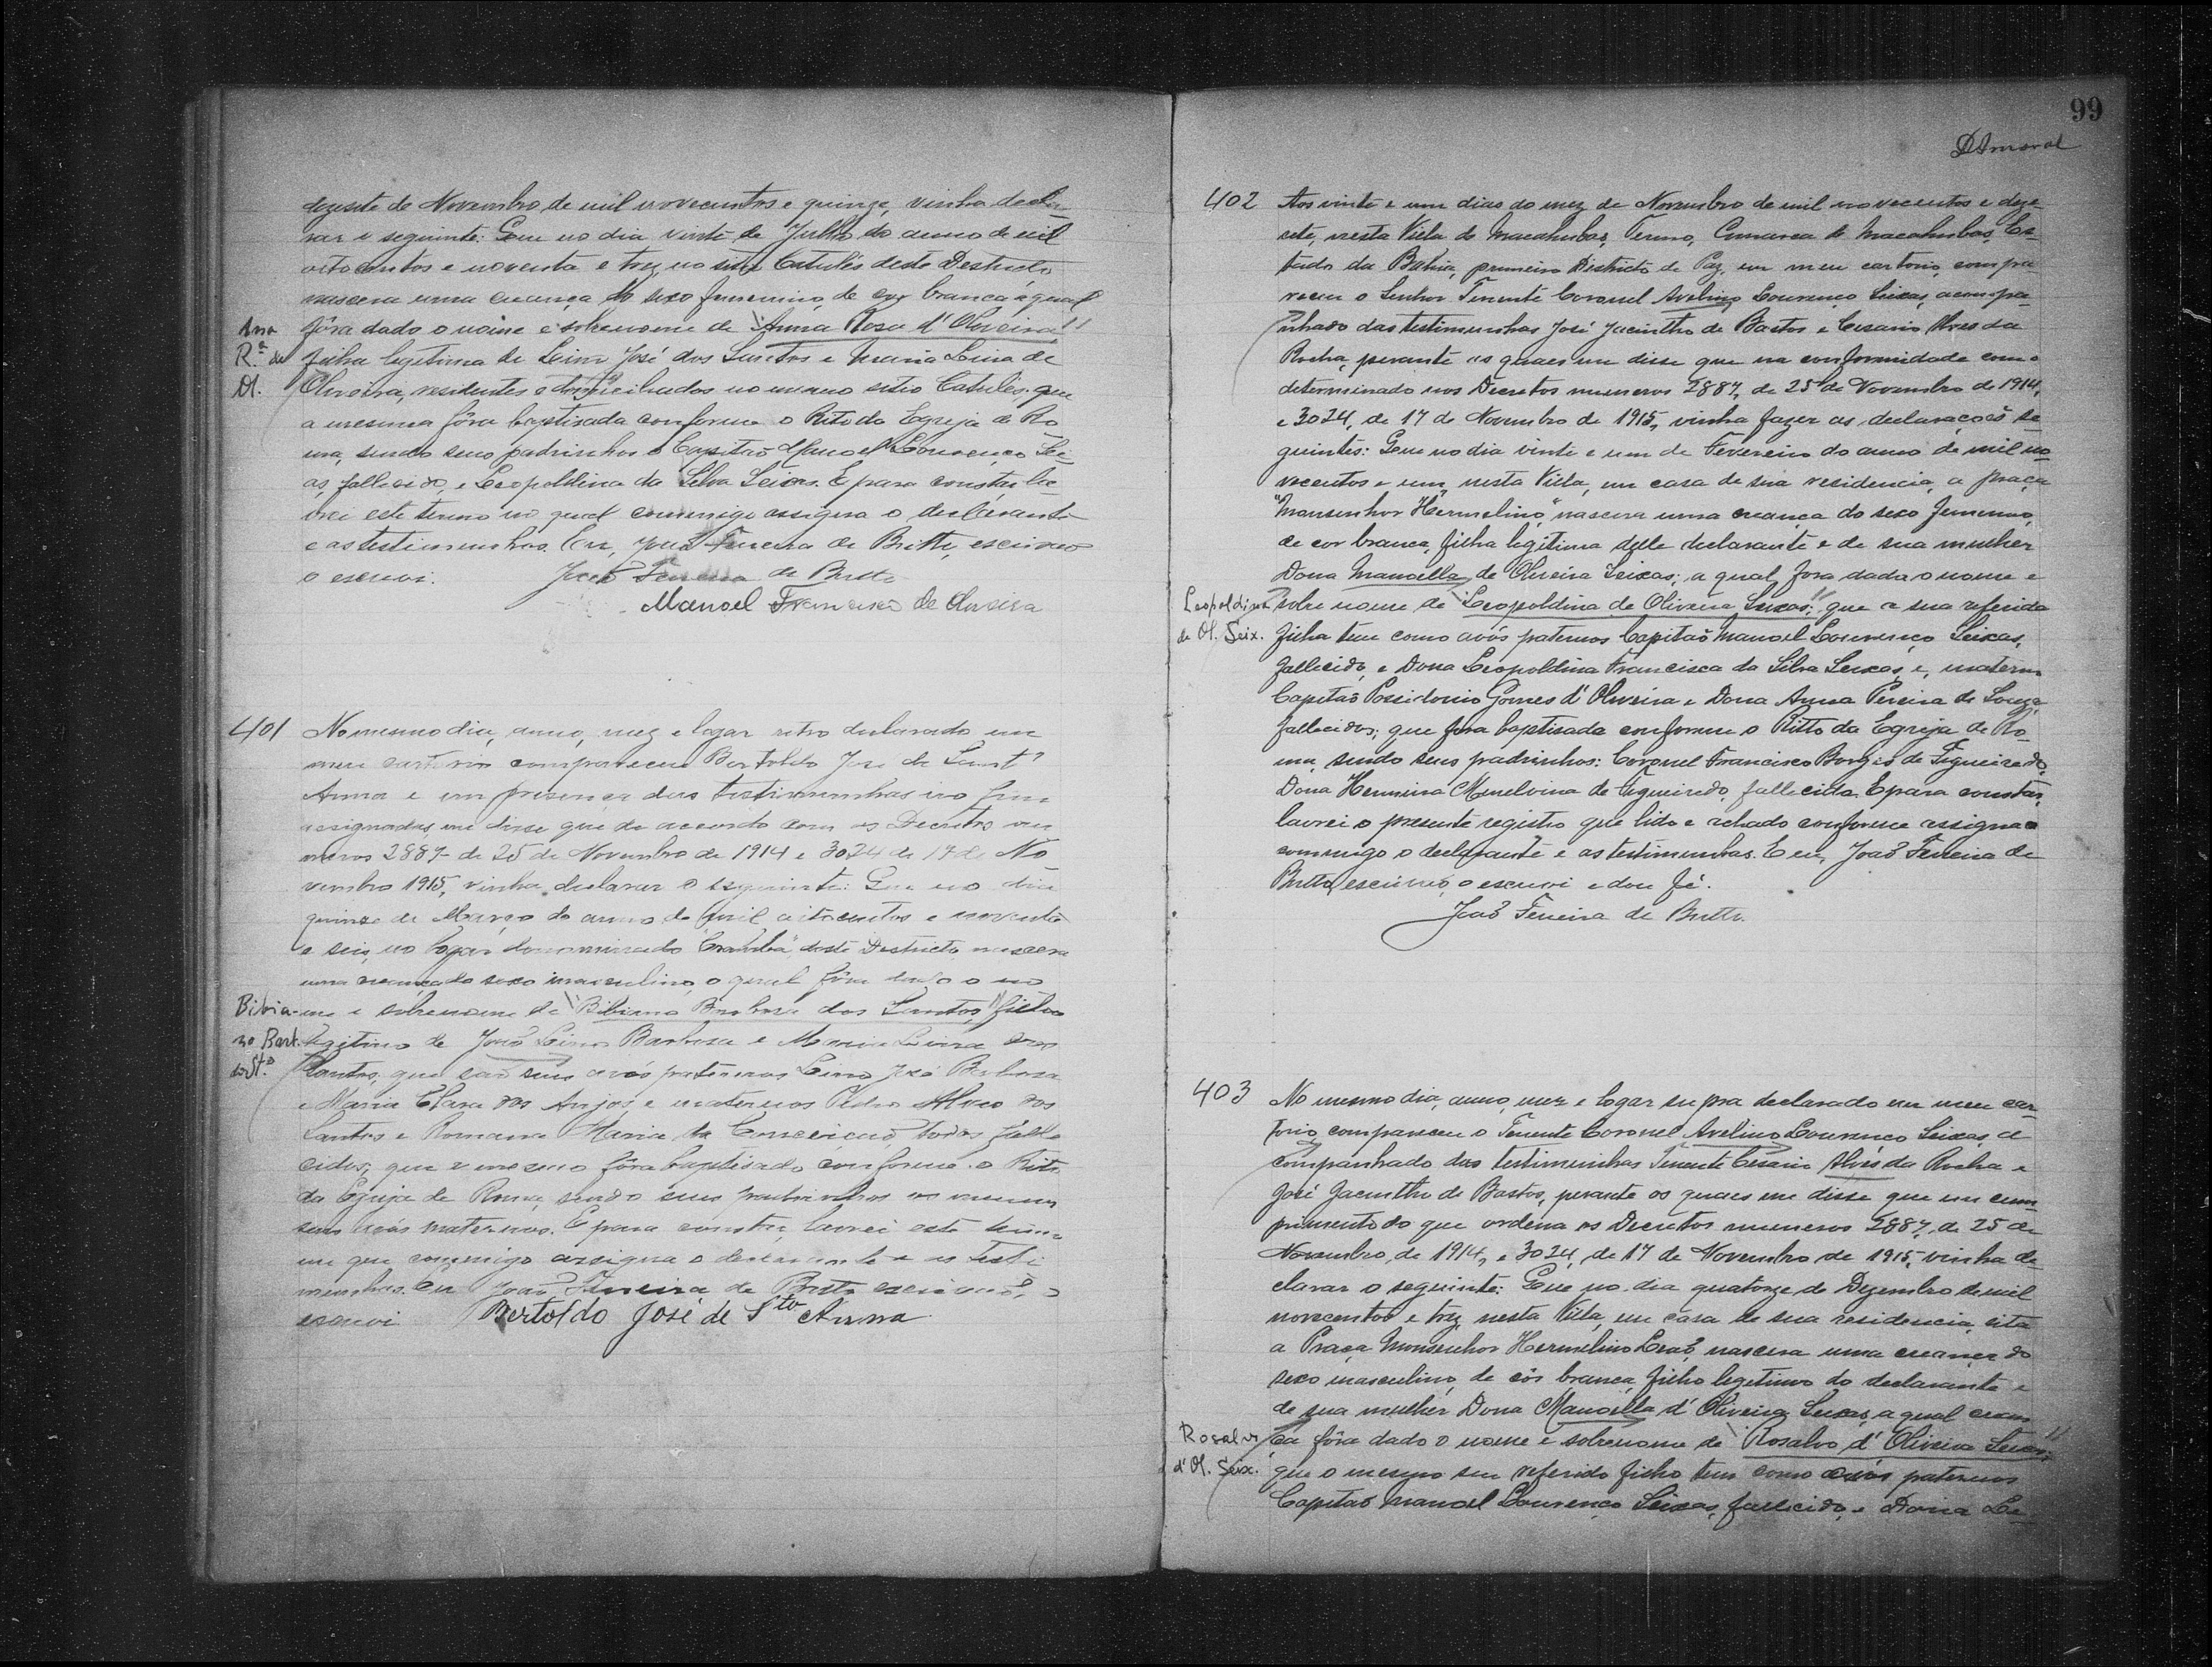 dezesete de Novembro de mil novecentos e quinze, vinha decla-
rar o seguinte: Que no dia vinte de Julho do anno de mil
oitocentos e noventa e trez, no sitio Catulés deste Destricto
nascera uma creança do sexo femenino, de cor branca, á qual
Anna fôra dado o nome e sobrenome de "Anna Rosa d'Oliveira"
R.ª de filha legitima de Lino José dos Santos e Maria Lina de
Ol. Oliveira, residentes e domiciliados no mesmo sitio Catulés, que
a mesma fôra baptisada conforme o Rito da Egreja de Ro
ma, sendo seus padrinhos o Capitão Manoel Lourenço Sei
as, fallecido, e Leopoldina da Silva Seixas. E para constar la-
vrei este termo no qual commigo assigna o declarante
e as testimunhas. Eu, João Ferreira de Britto, escrivão
o escrevi. João Ferreira de Britto
Manoel Francisco de Oliveira
401 No mesmo dia, anno, mez e logar retro declarado em
meu cartorio compareceu Bertoldo José de Sant'
Anna e em presença das testimunhas no fim
assignadas, me disse que de accordo com os Decretos nu
meros 2887 de 25 de Novembro de 1914 e 3024 de 17 de No
vembro 1915, vinha declarar o seguinte: Que no dia
quinze de Março do anno de mil oitocentos e noventa
e seis, no logar denominado deste Destricto, nascera
uma creança do sexo masculino, o qual fôra dado o no
Bibia- me e sobrenome de "Bibiano Barbosa dos Santos," filho
no Barb. legitimo de João Lino Barbosa e Maria Lina dos
dos St.º Santos; que são seus avós paternos Lino José Barbosa
e Maria Clara dos Anjos, e maternos Pedro Alves dos
Santos e Romana Maria da Conceição, todos falle
cidos; que o mesmo fôra baptisado conforme o Rito
da Egreja de Roma, sendo seus padrinhos os mesmos
seus avós maternos. E para constar, lavrei este termo
em que commigo assigna o declarante e as testi
munhas. Eu João Ferreira de Britto escrivão, o
escrevi Bertoldo José de Sto Anna
99
DAmaral
402 Aos vinte e um dias do mez de Novembro de mil novecentos e deze-
sete, nesta Villa de Macahubas, Termo, Comarca de Macahubas, Es-
tado da Bahia, primeiro Districto de Paz, em meu cartorio, compa-
receu o Senhor Tenente Coronel Avelino Lourenço Seixas, acompa-
nhado das testimunhas José Jacintho de Bastos e Cesario Alves da
Rocha, perante as quaes me disse que na conformidade com o
determinado nos Decretos numeros 2887, de 25 de Novembro de 1914,
e 3024, de 17 de Novembro de 1915, vinha fazer as declarações se-
guintes: Que no dia vinte e um de Fevereiro do anno de mil no-
vecentos e um, nesta Villa, em casa de sua residencia, a praça
"Monsenhor Hermelino," nascera uma creança do sexo femenino,
de cor branca, filha legitima delle declarante e de sua mulher
Dona Manoella de Oliveira Seixas; a qual fora dada o nome e
Leopoldina sobre nome de "Leopoldina de Oliveira Seixas;" que a sua referida
de Ol. Seix. filha tem como avós paternos Capitão Manoel Lourenço Seixas,
fallecido, e Dona Leopoldina Francisca da Silva Seixas, e, materno
Capitão Possidonio Gomes d'Oliveira e Dona Anna Pereira de Souza,
fallecidos; que fora baptisada conforme o Ritto da Egreja de Ro-
ma, sendo seus padrinhos: Coronel Francisco Borges de Figueiredo,
Dona Hermina Menelvina de Figueiredo, fallecida. E para constar,
lavrei o presente registro que lido e achado conforme assigna
commigo o declarante e as testimunhas. E eu, João Ferreira de
Britto, escrivão, o escrevi e dou fé.
João Ferreira de Britto.
403 No mesmo dia, anno, mez e logar supra declarado em meu car
torio, compareceu o Tenente Coronel Avelino Lourenço Seixas, a
companhado das testimunhas Tenente Cesario Alves da Rocha e
José Jacintho de Bastos, perante os quaes me disse que em cum
primento do que ordena os Decretos numeros 2887, de 25 de
Novembro, de 1914, e 3024, de 17 de Novembro de 1915, vinha de
clarar o seguinte: Que no dia quatorze de Dezembro de mil
novecentos e trez, nesta Villa, em casa de sua residencia, sita
a Praça Monsenhor Hermelino Leão, nascera uma creança do
sexo masculino, de côr branca, filho legitimo do declarante e
de sua mulher Dona Manoella d'Oliveira Seixas, a qual crean
Rosalvo ça fôra dado o nome e sobrenome de "Rosalvo d'Oliveira Seixas;"
d'Ol. Seix. que o mesmo seu referido filho tem como avós paternos
Capitão Manoel Lourenço Seixas, fallecido, e Dona Le-